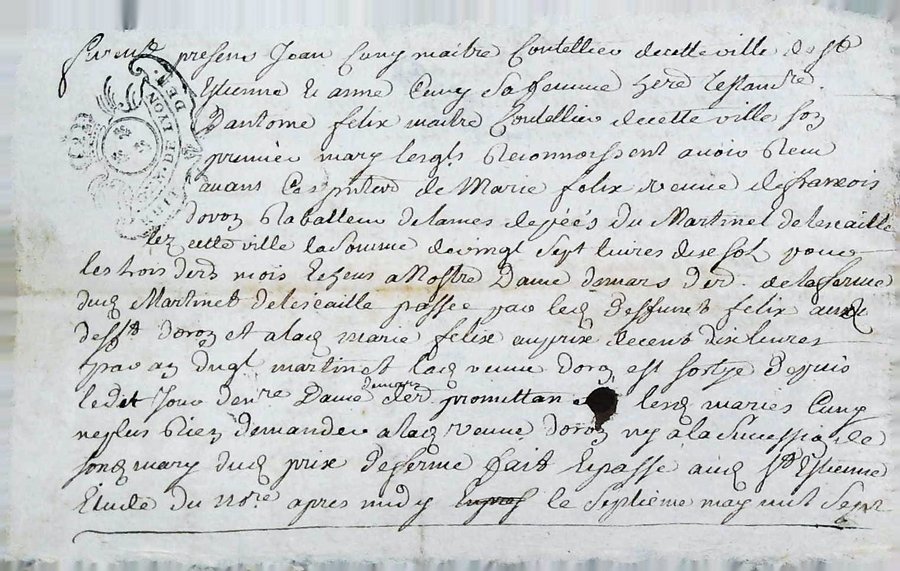 furent presens Jean Cuny maitre Coutellier decette ville de St
Etienne et anne Cuny sa femme
Dantoine felix maitre Coutellier decette ville son
premier mary lesqls Reconnoissent avoir Receu
avant Ces ptes de Marie felix veuve defrancois
dovon Rabatteur delames depées du Martinet delescaille
lez cette ville la Somme devingt sept livres dix sols pour
les trois ders mois Echeus a Nostre Dame demars der. delaferme
dud Martinet delescaille passée par led deffunct felix
dovon et alad marie felix auprix decent dix livres
par an martinet lad veuve dovon est sortye depuis
ledit Jour denre Dame demars der promettant lesd maries Cuny
neplus Rien demander alad veuve dovon ny à la Succession de
sond mary dud prix deferme fait Epasse aud St Estienne
Etude du nore apres midy le Septieme may mil Sept